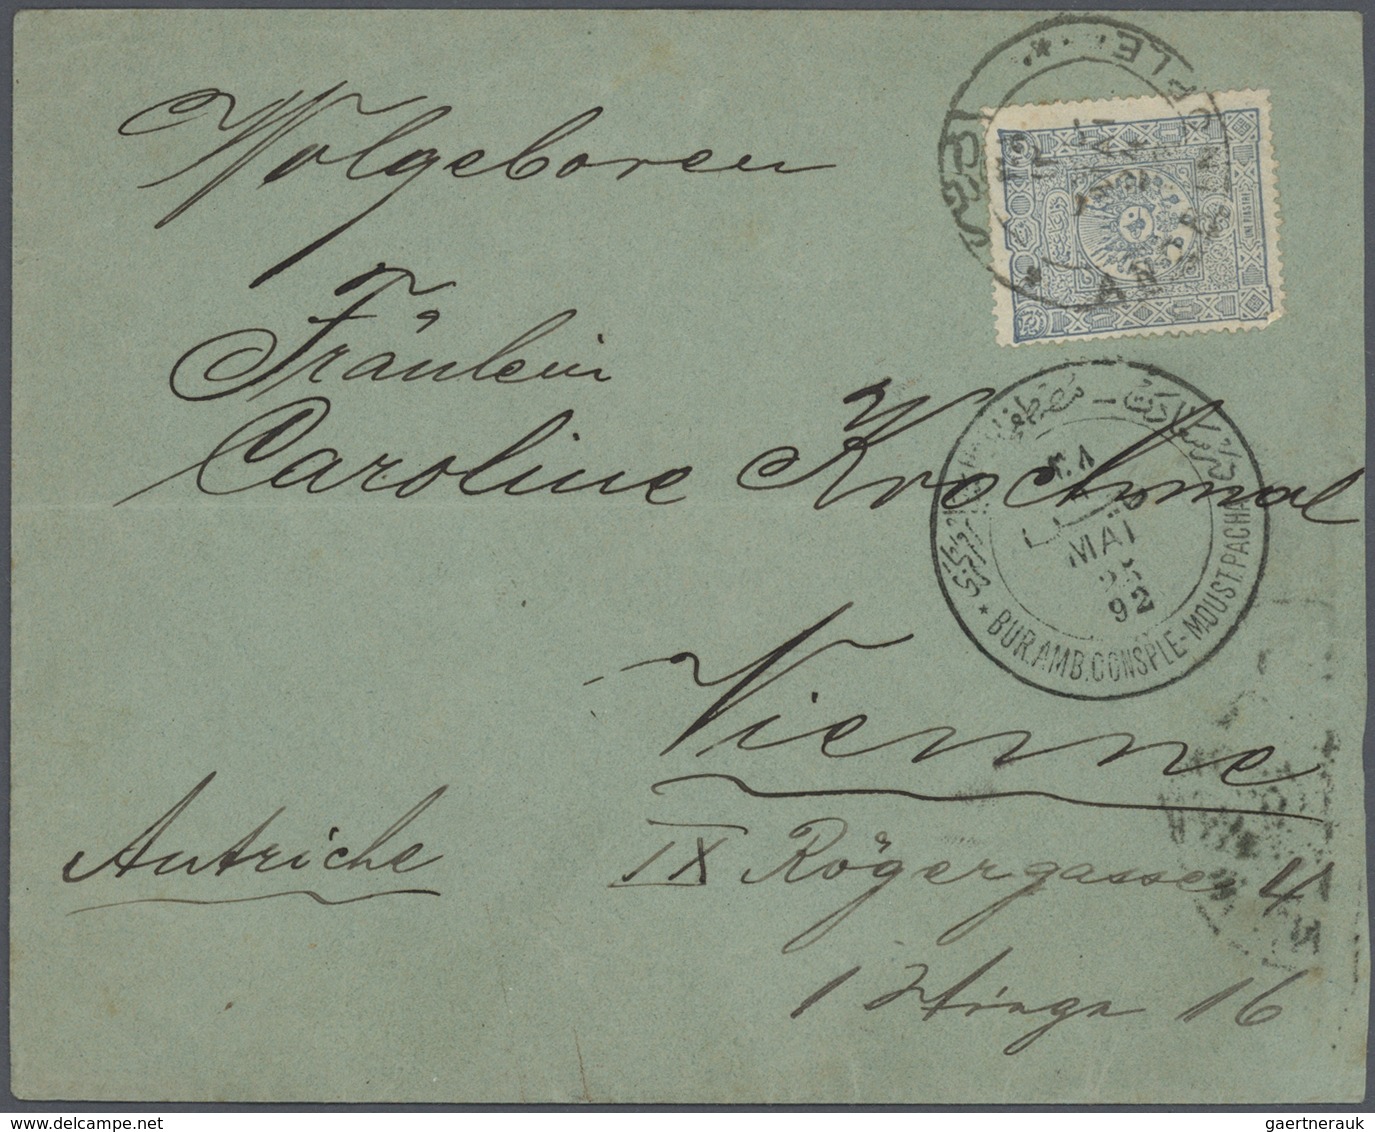 Wolgeboren
Fräulein
Caroline Krochmal
Vienne
Autriche
IX Rögergasse 4
1 Stiege 16
UNE PIASTRE
ANDRIN
PLE
MAI
92
* BUR.AMB.CONSPLE-MOUST.PACHA
gaertnerauk